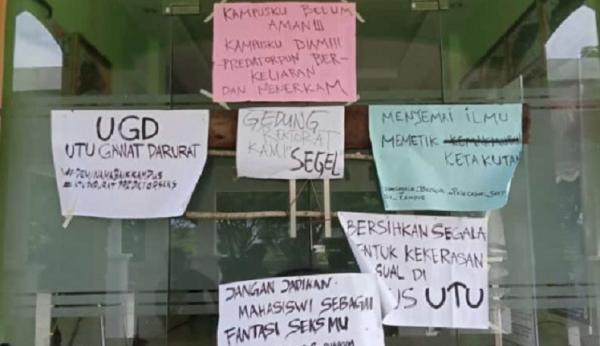 KAMPUSKU BELUM
AMAN!!!
KAMPUSKU DIAM!!!
PREDATORPUN BER-
KELIARAN
DAN MENERKAM
UGD
UTU GAWAT DARURAT
#DEMINAMABAIKKAMPUS
GEDUNG
REKTORAT
KAMI
SEGEL
MENYEMAI ILMU
MEMETIK KEMAKMURAN
KETAKUTAN
BERSIHKAN SEGALA
BENTUK KEKERASAN
SUAL DI
US UTU
JANGAN JADIKAN
MAHASISWI SEBAGAI
FANTASI SEKSMU